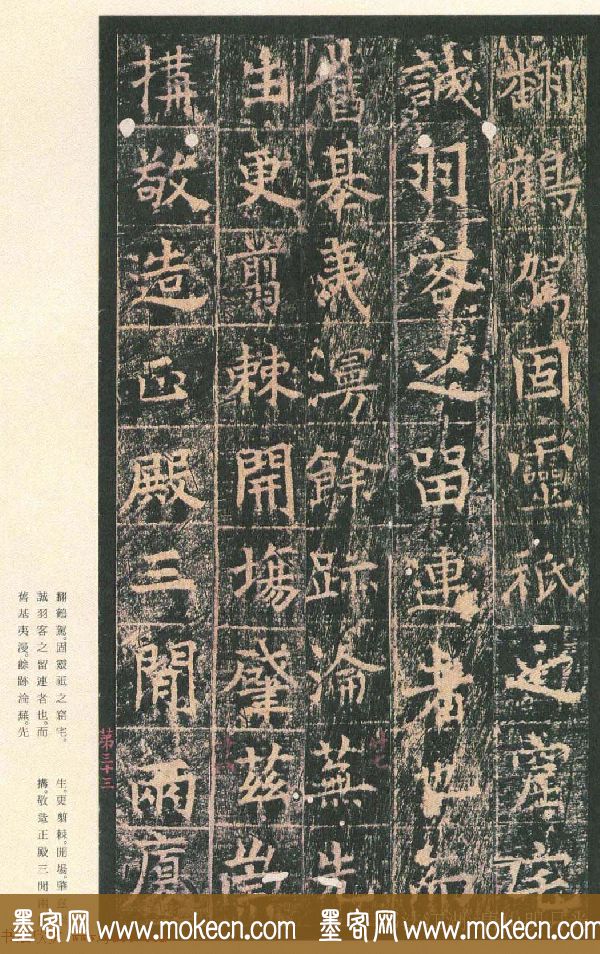 翻鶴駕固靈祇之窟宅
誠羽客之留連者也而
舊基夷漫餘跡淪蕪先
生更翦棘開場肇茲
搆敬造正殿三間兩廡
第三十三
翻鶴駕。固靈祇之窟宅。
誠羽客之留連者也。而
舊基夷漫。餘跡淪蕪。先
生。更翦棘。開場。肇
搆。敬造正殿三間兩
墨客网 www.mokecn.com 墨客网 www.mokecn.com